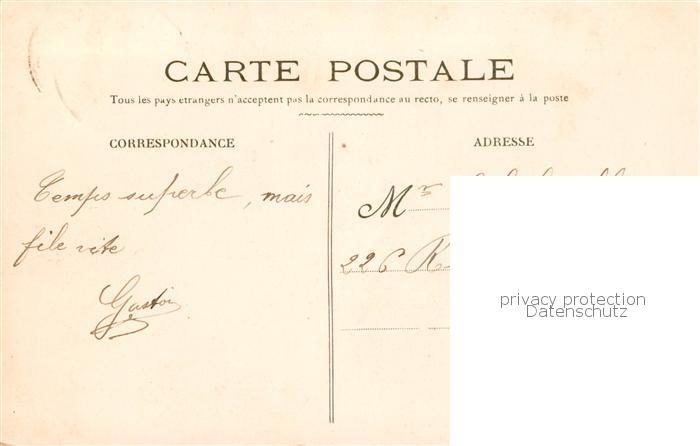 CARTE POSTALE
Tous les pays etrangers n'acceptent pas la correspondance au recto, se renseigner à la poste
CORRESPONDANCE
Temps superbe, mais
file vite
Gaston
ADRESSE
Mr
226 R
privacy protection
Datenschutz